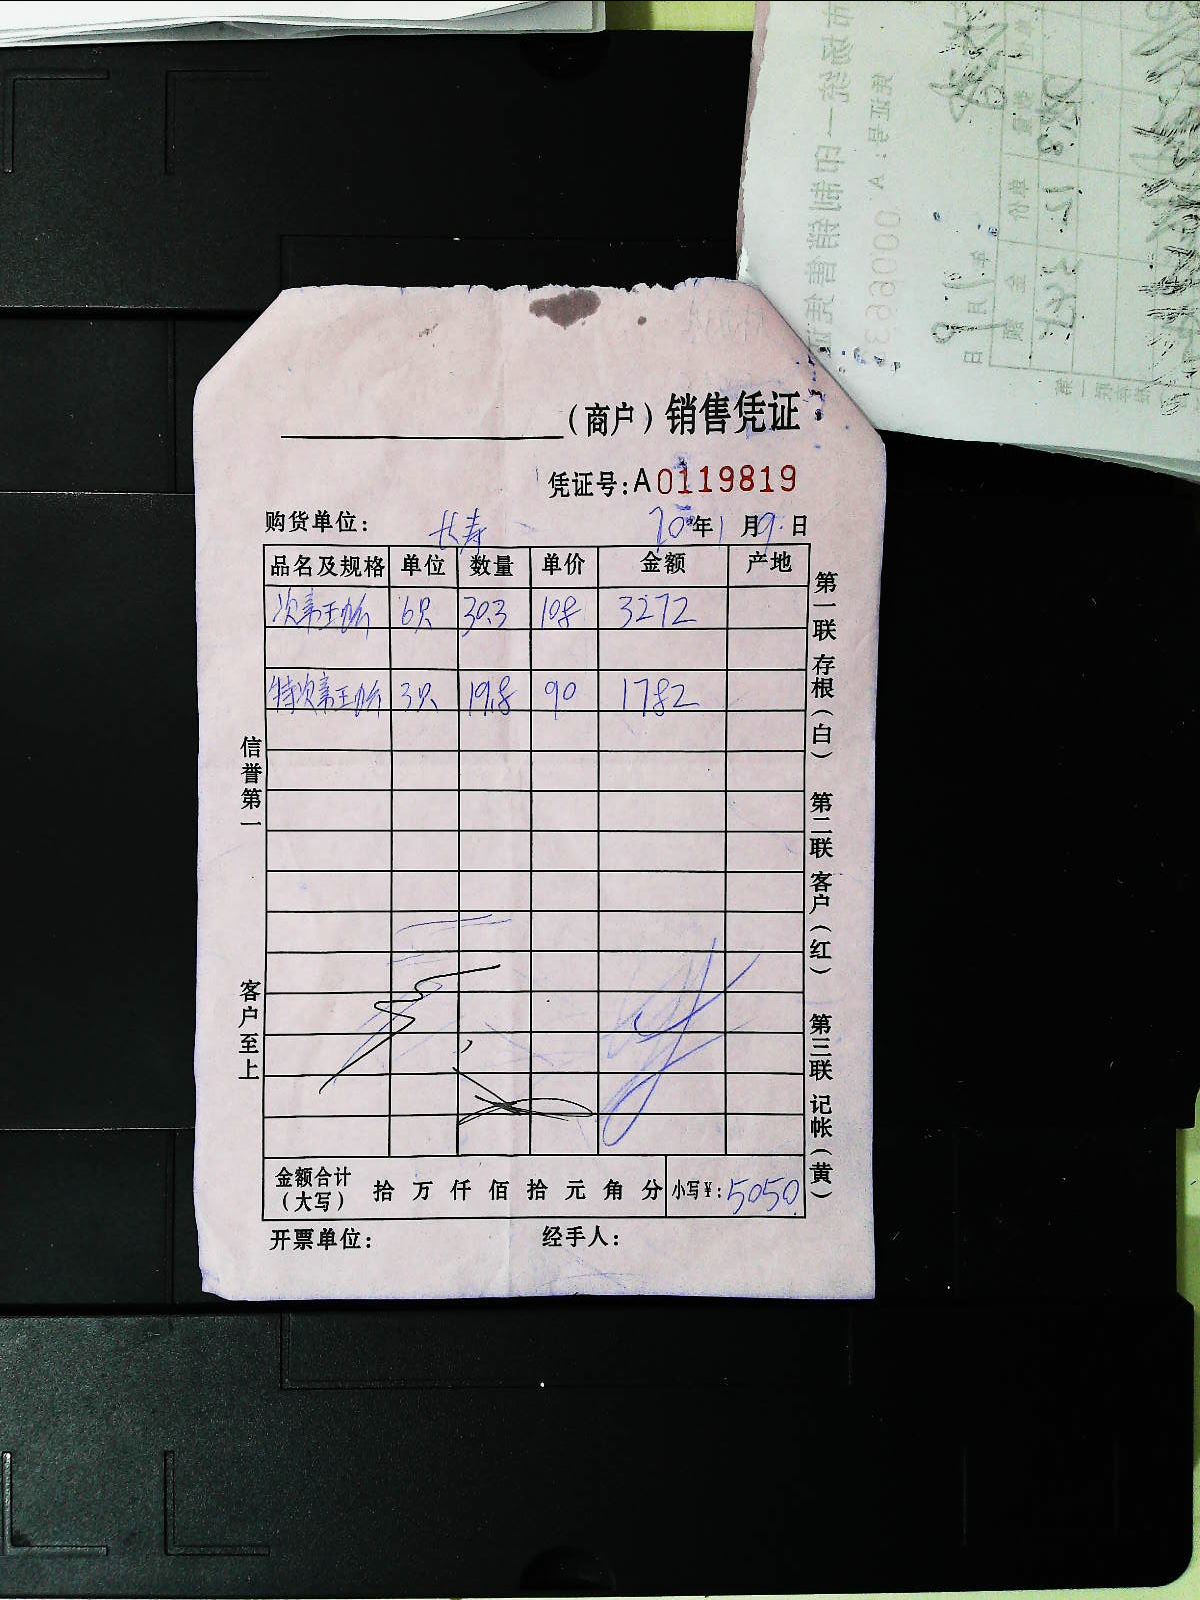 （商户）销售凭证
凭证号:A0119819
购货单位： 长寿 20年1月9日
品名及规格 单位 数量 单价 金额 产地
6只 30.3 108 3272
3只 19.8 90 1782
信誉第一
客户至上
第一联 存根（白） 第二联 客户（红） 第三联 记帐（黄）
金额合计（大写） 拾 万 仟 佰 拾 元 角 分 小写¥: 5050
开票单位： 经手人：